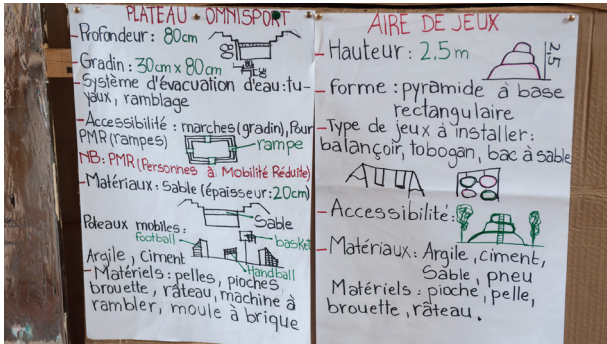 PLATEAU OMNISPORT
- Profondeur : 80cm
- Gradin : 30cm x 80cm
- Système d'évacuation d'eau : tu-
yaux, ramblage
- Accessibilité : marches (gradin), Pour
PMR (rampes)
rampe
NB : PMR (Personnes à Mobilité Réduite)
- Matériaux : sable (épaisseur : 20cm)
Sable
Poteaux mobiles :
football
basket
Handball
Argile, Ciment
- Matériels : pelles, pioches,
brouette, râteau, machine à
rambler, moule à brique
AIRE DE JEUX
- Hauteur : 2,5 m
2,5
- forme : pyramide à base
rectangulaire
- Type de jeux à installer :
balançoir, tobogan, bac à sable
- Accessibilité :
- Matériaux : Argile, ciment,
Sable, pneu
Matériels : pioche, pelle,
brouette, râteau.